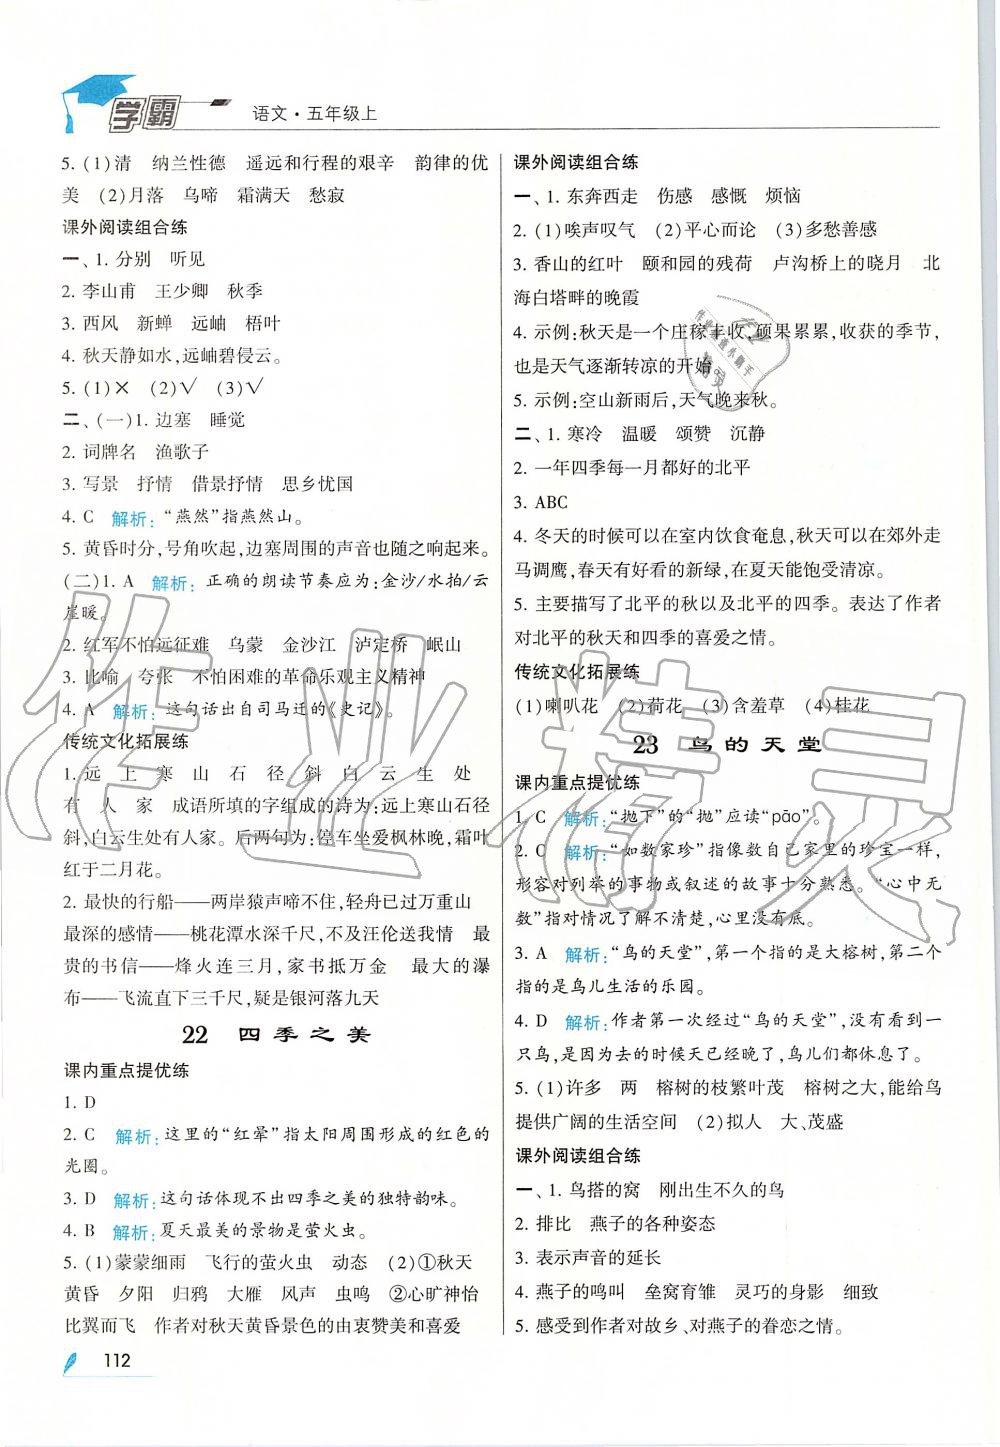 学霸
语文·五年级上
5. (1)清　纳兰性德　遥远和行程的艰辛　韵律的优
美　(2)月落　乌啼　霜满天　愁寂
课外阅读组合练
一、1. 分别　听见
2. 李山甫　王少卿　秋季
3. 西风　新蝉　远岫　梧叶
4. 秋天静如水,远岫碧侵云。
5. (1)×　(2)√　(3)√
二、(一)1. 边塞　睡觉
2. 词牌名　渔歌子
3. 写景　抒情　借景抒情　思乡忧国
4. C　解析:“燕然”指燕然山。
5. 黄昏时分,号角吹起,边塞周围的声音也随之响起来。
(二)1. A　解析:正确的朗读节奏应为:金沙/水拍/云
崖暖。
2. 红军不怕远征难　乌蒙　金沙江　泸定桥　岷山
3. 比喻　夸张　不怕困难的革命乐观主义精神
4. A　解析:这句话出自司马迁的《史记》。
传统文化拓展练
1. 远　上　寒　山　石　径　斜　白　云　生　处
有　人　家　成语所填的字组成的诗为:远上寒山石径
斜,白云生处有人家。后两句为:停车坐爱枫林晚,霜叶
红于二月花。
2. 最快的行船——两岸猿声啼不住,轻舟已过万重山
最深的感情——桃花潭水深千尺,不及汪伦送我情　最
贵的书信——烽火连三月,家书抵万金　最大的瀑
布——飞流直下三千尺,疑是银河落九天
22　四季之美
课内重点提优练
1. D
2. C　解析:这里的“红晕”指太阳周围形成的红色的
光圈。
3. D　解析:这句话体现不出四季之美的独特韵味。
4. B　解析:夏天最美的景物是萤火虫。
5. (1)蒙蒙细雨　飞行的萤火虫　动态　(2)①秋天
黄昏　夕阳　归鸦　大雁　风声　虫鸣　②心旷神怡
比翼而飞　作者对秋天黄昏景色的由衷赞美和喜爱
112
课外阅读组合练
一、1. 东奔西走　伤感　感慨　烦恼
2. (1)唉声叹气　(2)平心而论　(3)多愁善感
3. 香山的红叶　颐和园的残荷　卢沟桥上的晓月　北
海白塔畔的晚霞
4. 示例:秋天是一个庄稼丰收,硕果累累,收获的季节,
也是天气逐渐转凉的开始
5. 示例:空山新雨后,天气晚来秋。
二、1. 寒冷　温暖　颂赞　沉静
2. 一年四季每一月都好的北平
3. ABC
4. 冬天的时候可以在室内饮食奄息,秋天可以在郊外走
马调鹰,春天有好看的新绿,在夏天能饱受清凉。
5. 主要描写了北平的秋以及北平的四季。表达了作者
对北平的秋天和四季的喜爱之情。
传统文化拓展练
(1)喇叭花　(2)荷花　(3)含羞草　(4)桂花
23　鸟的天堂
课内重点提优练
1. C　解析:“抛下”的“抛”应读“pāo”。
2. C　解析:“如数家珍”指像数自己家里的珍宝一样,
形容对列举的事物或叙述的故事十分熟悉。“心中无
数”指对情况了解不清楚,心里没有底。
3. A　解析:“鸟的天堂”,第一个指的是大榕树,第二个
指的是鸟儿生活的乐园。
4. D　解析:作者第一次经过“鸟的天堂”,没有看到一
只鸟,是因为去的时候天晚了,鸟儿们都休息了。
5. (1)许多　两　榕树的枝繁叶茂　榕树之大,能给鸟
提供广阔的生活空间　(2)拟人　大、茂盛
课外阅读组合练
一、1. 鸟搭的窝　刚出生不久的鸟
2. 排比　燕子的各种姿态
3. 表示声音的延长
4. 燕子的鸣叫　垒窝育雏　灵巧的身影　细致
5. 感受到作者对故乡、对燕子的眷恋之情。
作业精灵